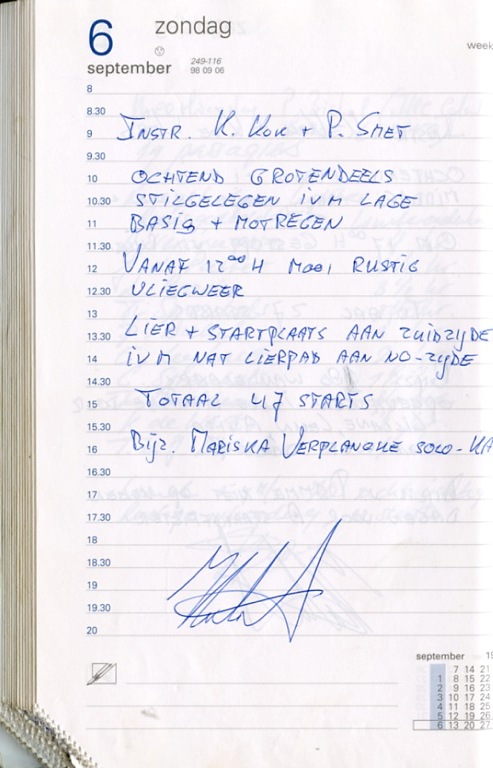 6 zondag
week
september 249-116
98 09 06
8
8.30
9 INSTR. K. KOK + P. SMET
9.30
10 OCHTEND GROTENDEELS
10.30 STILGELEGEN IVM LAGE
11 BASIS + MOTREGEN
11.30
12 VANAF 12⁰⁰ H MOOI RUSTIG
12.30 VLIEGWEER
13
13.30 LIER + STARTPLAATS AAN ZUIDZIJDE
14 IVM NAT LIERPAD AAN NO-ZIJDE
14.30
15 TOTAAL 47 STARTS
15.30
16 BIJZ. MARISKA VERPLANCKE SOLO-KA
16.30
17
17.30
18
18.30
19
19.30
20
september
7 14 21
1 8 15 22
2 9 16 23
3 10 17 24
4 11 18 25
5 12 19 26
6 13 20 27